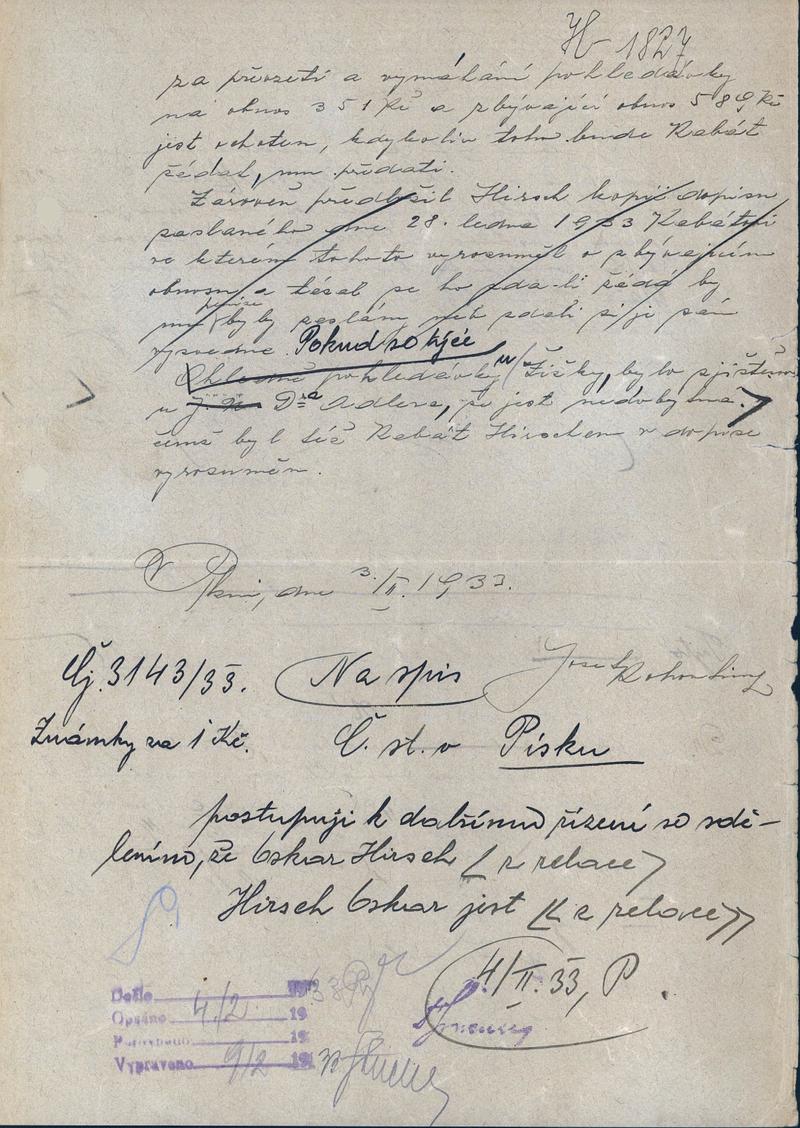 H 1827
za převzetí a vymáhání pohledávky
na obnos 351 Kč a zbývající obnos 589 Kč
jest ochoten, kdykoliv toho bude Rabát
žádat, mu předati.
Zároveň předložil Hirsch kopii dopisu
zaslaného dne 28. ledna 1933 Rabátovi
ve kterém tohoto vyrozuměl o zbývajícím
obnosu a tázal se ho zda-li žádá by
peníze
mu byly zaslány neb zdali si je sám
vyzvedne. Pokud se týče
Ohledně pohledávky u Žižky, bylo zjištěno
u Dra Adlera, že jest nedobytná.
čemž byl též Rabát Hirschem v dopise
vyrozuměn.
V Plzni, dne 3./II. 1933.
Josef
Čj. 3143/33. Na spis
Známky za 1 Kč. Č. st. v Písku
postupuji k dalšímu řízení se sdě-
lením, že Oskar Hirsch ( z relace )
Hirsch Oskar jest (( z relace ))
4/II. 33, P
Došlo 193
Opsáno 4/2 19
Porovnáno 19
Vypraveno 9/2 19